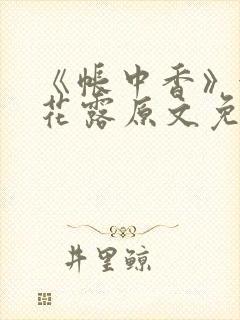 《帐中香》
花露原文免
井里鲸